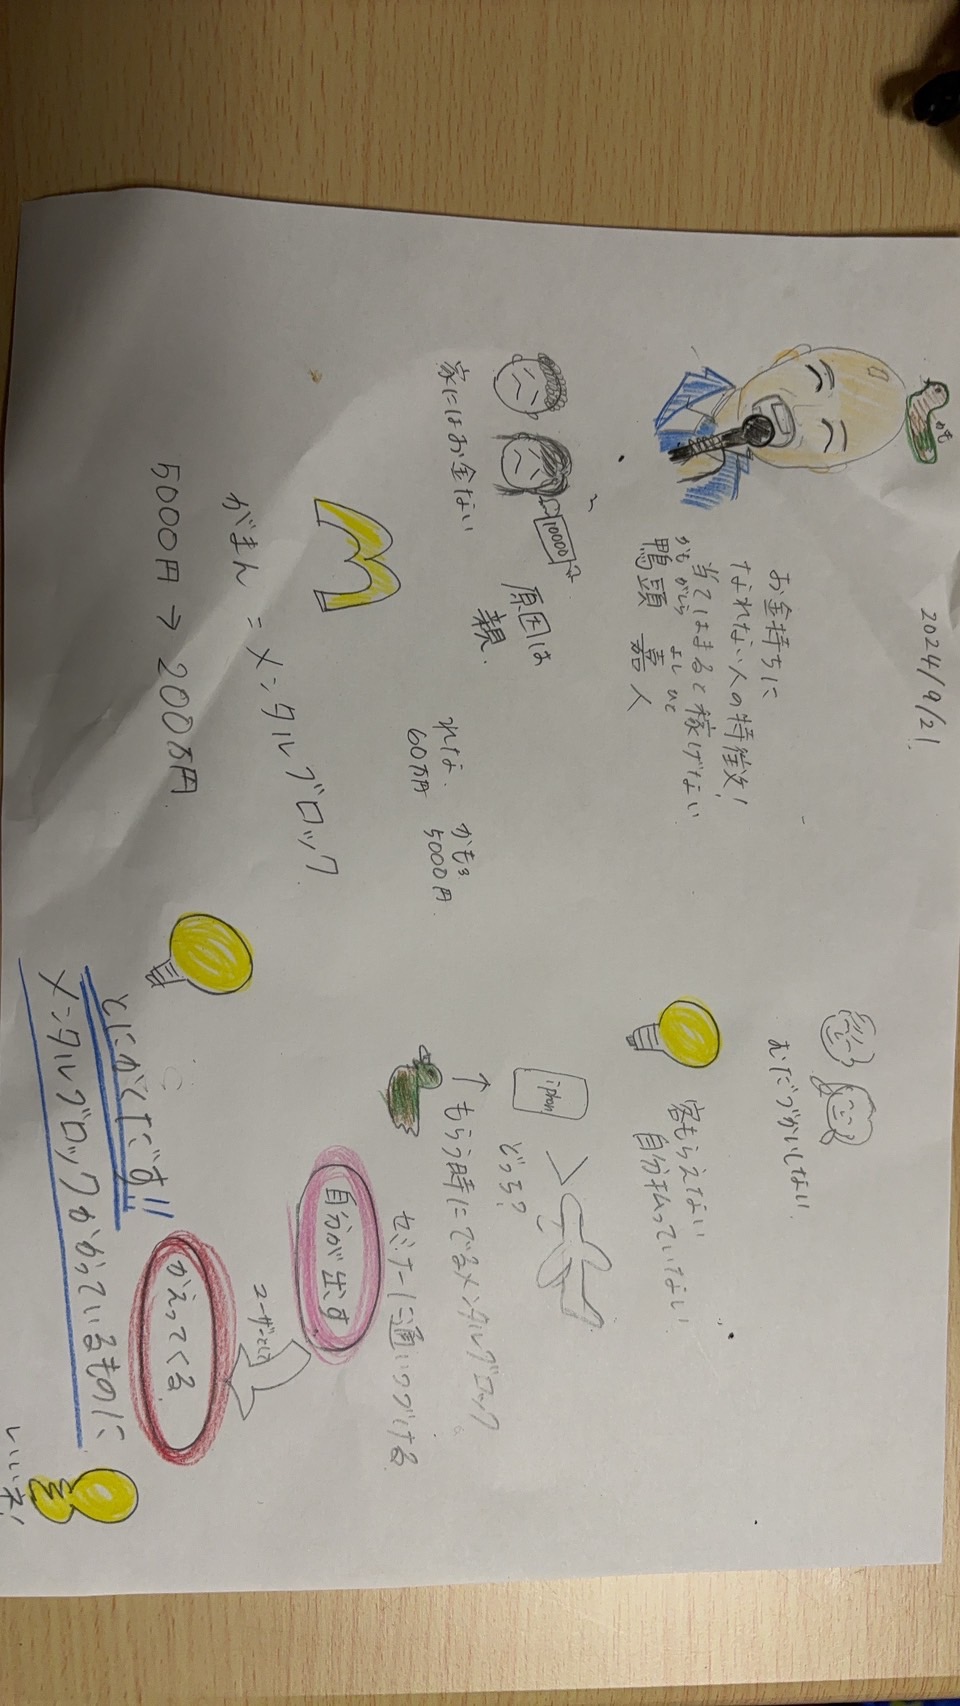 2024/9/21
かも
お金持ちに
なれない人の特徴!
当てはまると稼げない
かもがしら よしひと
鴨頭 嘉人
10000
家にはお金ない
原因は
親.
れな
60万円
かも3
5000円
がまん = メンタルブロック
5000円 → 200万円
むだづかいしない
客もらえてない
自分払っていない
iphon
どっち?
↑もらう時にでるメンタルブロック
セミナーに通いつづける
自分が出す
ユーザーとして
かえってくる
とにかくだす!!
メンタルブロックかかっているものに
いいネ!